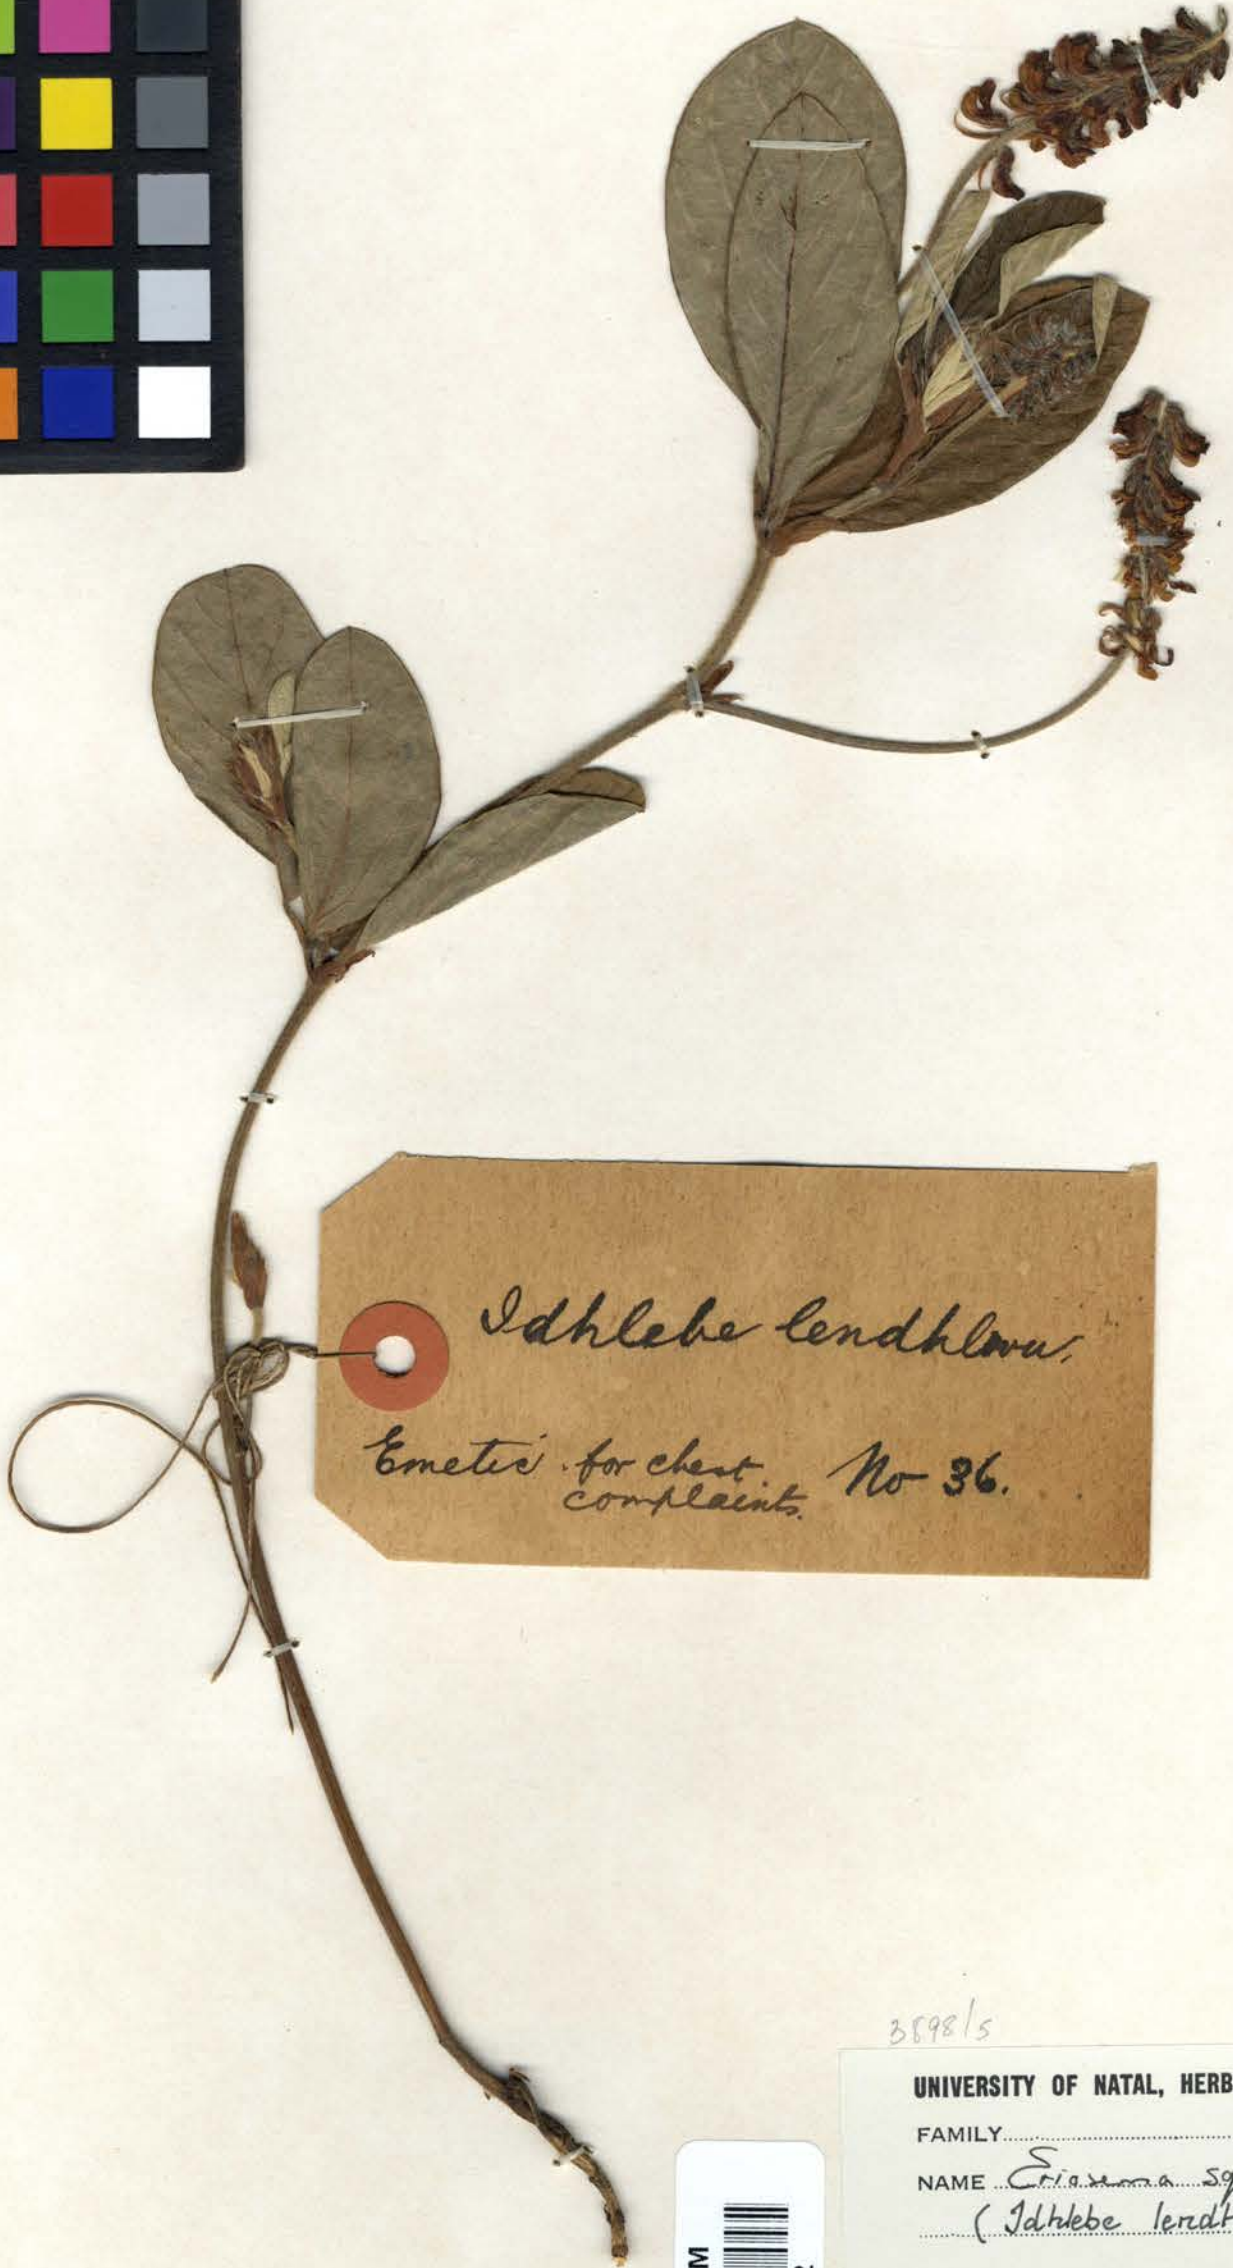 Idhlebe lendhlovu.
Emetic for chest
complaints.
No 36.
3898/5
UNIVERSITY OF NATAL, HERB
FAMILY
NAME Eriosema sq
(Idhlebe lendh
M